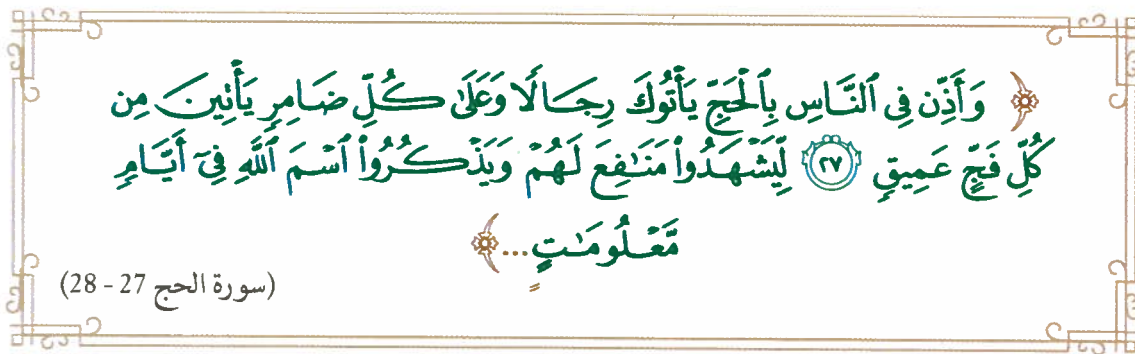 ﴿ وَأَذِّن فِي ٱلنَّاسِ بِٱلْحَجِّ يَأْتُوكَ رِجَالًا وَعَلَىٰ كُلِّ ضَامِرٍ يَأْتِينَ مِن
كُلِّ فَجٍّ عَمِيقٍ ٢٧ لِّيَشْهَدُوا۟ مَنَٰفِعَ لَهُمْ وَيَذْكُرُوا۟ ٱسْمَ ٱللَّهِ فِىٓ أَيَّامٍ
مَّعْلُومَٰتٍ...﴾
(سورة الحج 27 - 28)